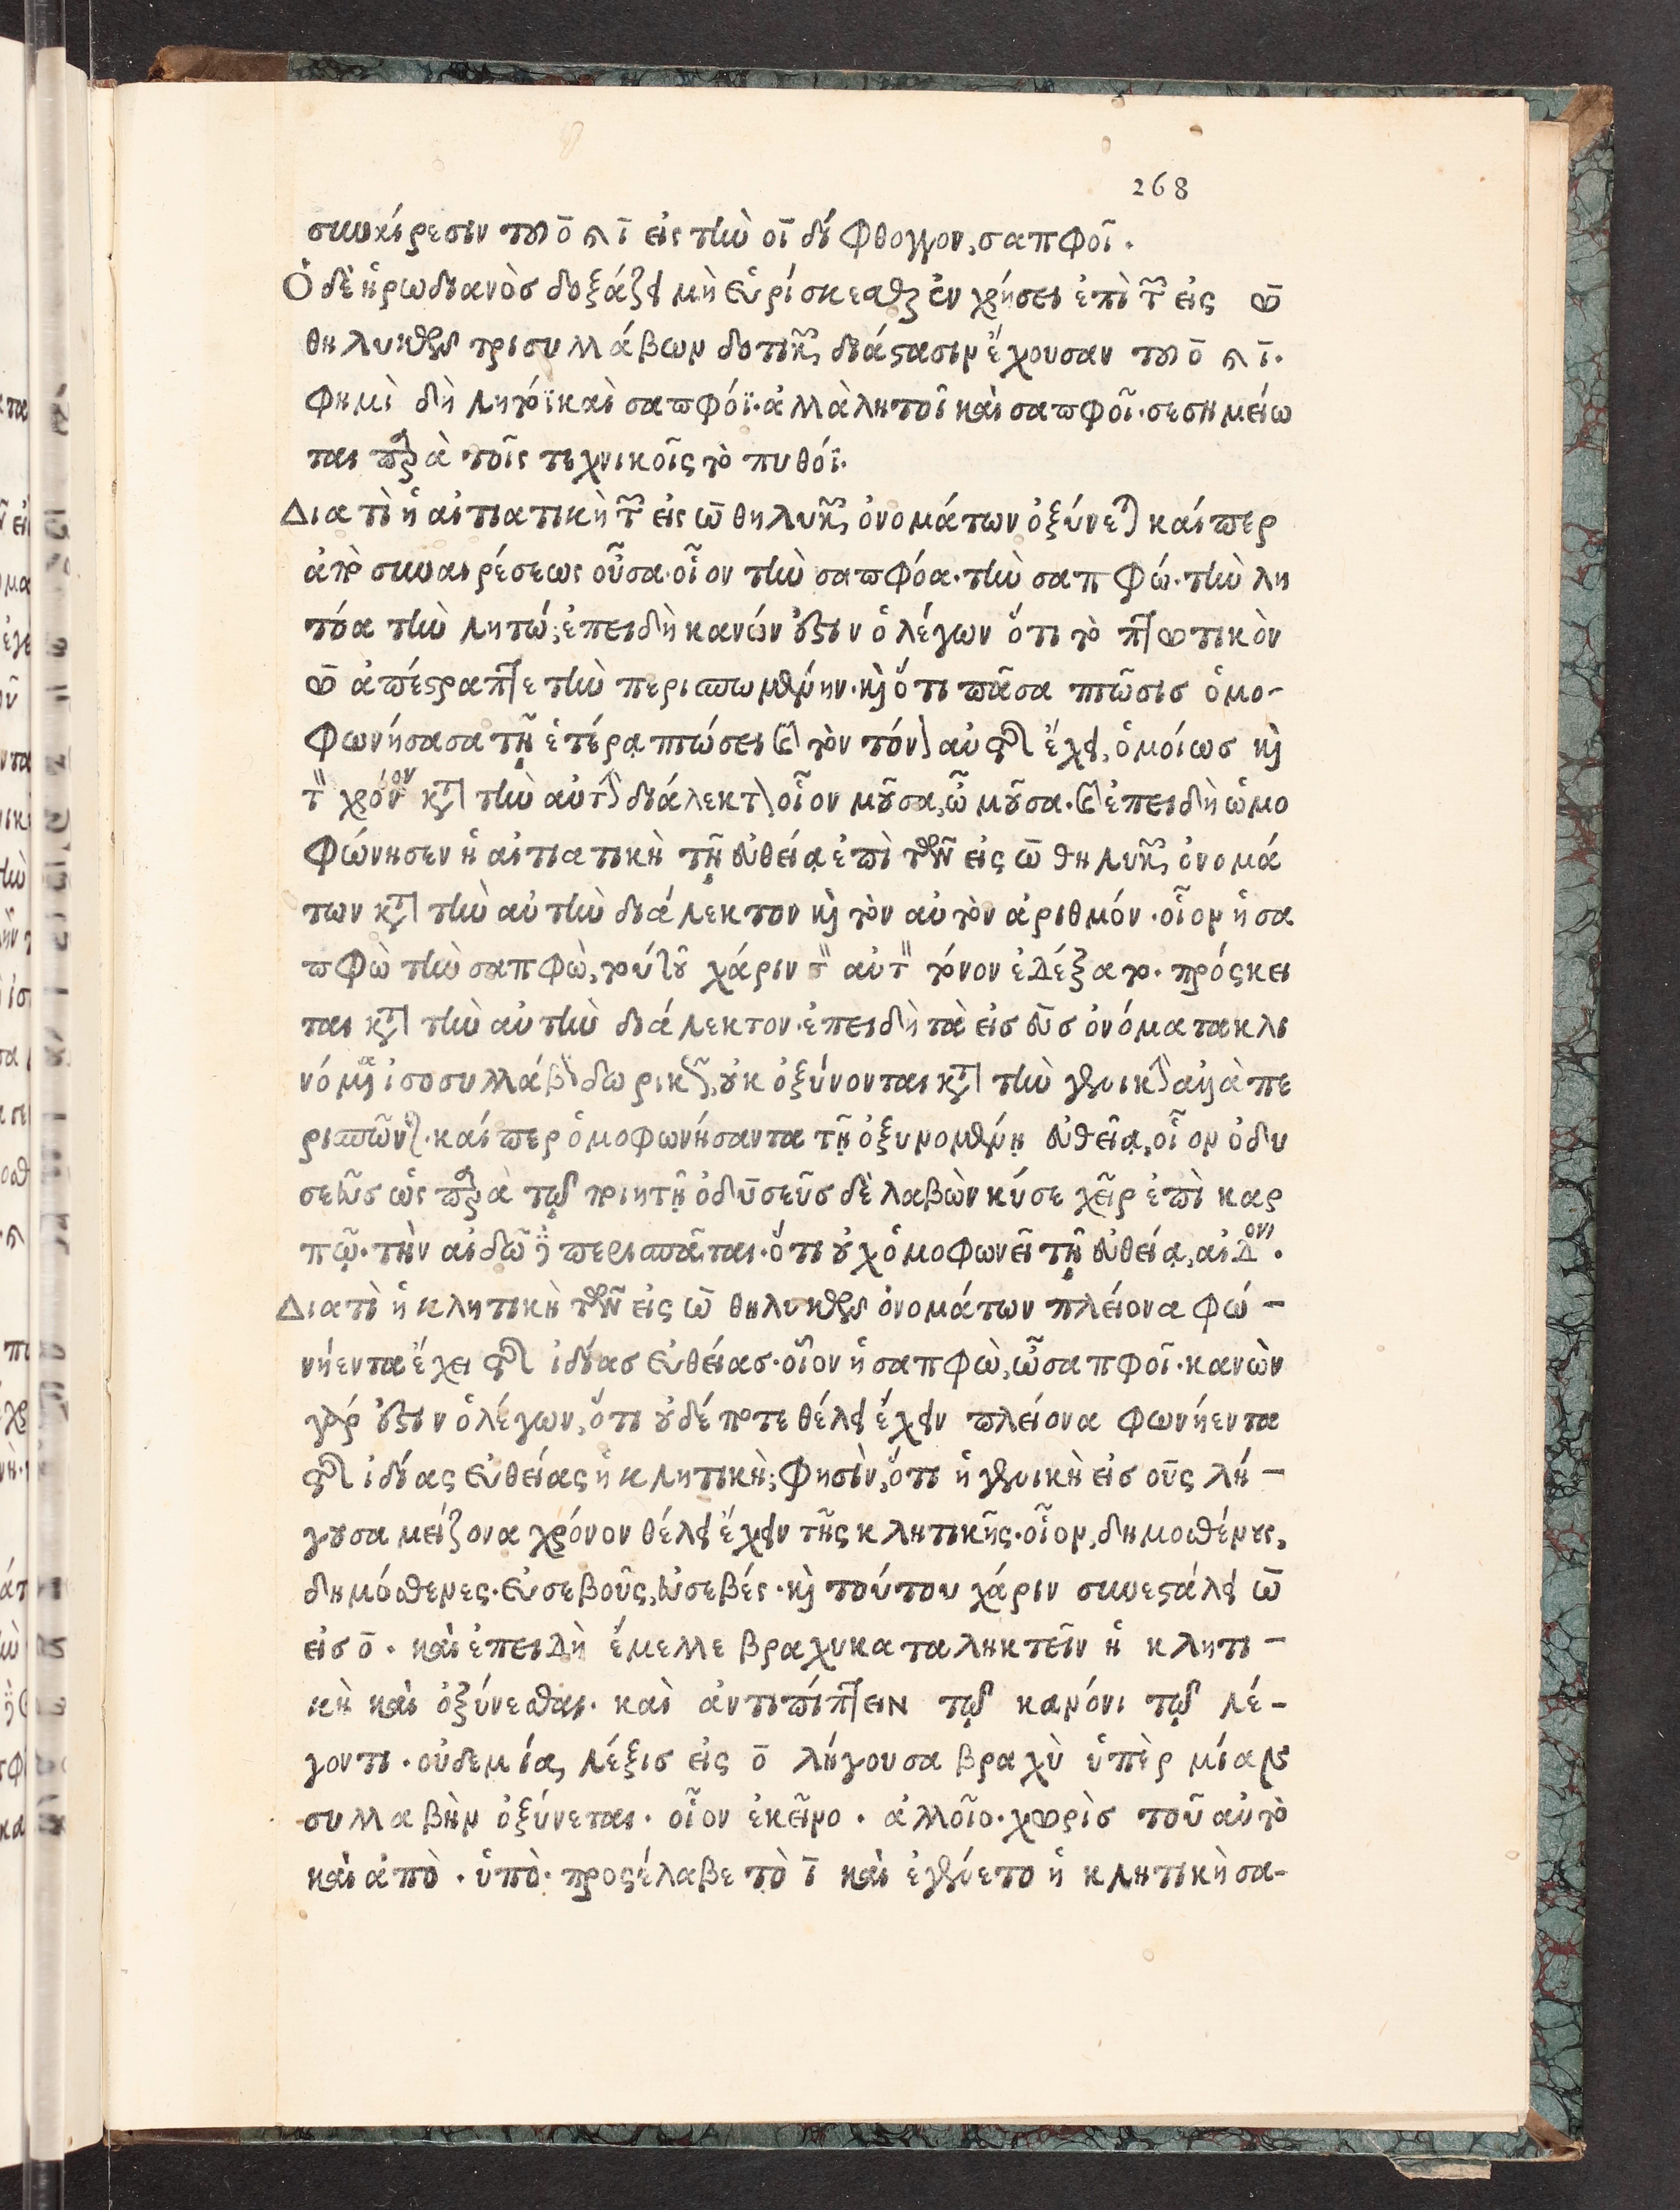 268
συναίρεσιν τοῦ ο̄ καὶ ῑ εἰς τὴν οῑ δίφθογγον, σαπφοῖ.
Ὁ δὲ ἡρωδιανὸσ δοξάζει μὴ εὑρίσκεσθαι ἐν χρήσει ἐπὶ τῶν εἰς ω̄
θηλυκῶν τρισυλλάβων δοτικὴν διάστασιν ἔχουσαν τοῦ ο̄ καὶ ῑ.
φημὶ δὴ λητόϊ καὶ σαπφόϊ. ἀλλὰ λητοῖ καὶ σαπφοῖ. σεσημείω
ται παρὰ τοῖς τεχνικοῖς τὸ πυθόϊ.
Διατὶ ἡ αἰτιατικὴ τῶν εἰς ω̄ θηλυκῶν ὀνομάτων ὀξύνεται καίπερ
ἀπὸ συναιρέσεως οὖσα. οἷον τὴν σαπφόα. τὴν σαπφώ. τὴν λη
τόα τὴν λητώ; ἐπειδὴ κανών ἐστιν ὁ λέγων ὅτι τὸ πτωτικὸν
ω̄ ἀπέστραπτε τὴν περισπωμένην. καὶ ὅτι πᾶσα πτῶσισ ὁμο-
φωνήσασα τῇ ἑτέρᾳ πτώσει καὶ τὸν τόνον αὐτῆς ἔχει, ὁμοίωσ καὶ
τὸν χρόνον κατὰ τὴν αὐτὴν διάλεκτον οἷον μοῦσα, ὦ μοῦσα. καὶ ἐπειδὴ ὡμο
φώνησεν ἡ αἰτιατικὴ τῇ εὐθείᾳ ἐπὶ τῶν εἰς ω̄ θηλυκῶν ὀνομά
των κατὰ τὴν αὐτὴν διάλεκτον καὶ τὸν αὐτὸν ἀριθμόν. οἷον ἡ σα
πφὼ τὴν σαπφὼ, τούτου χάριν τὸν αὐτὸν τόνον ἐδέξατο. πρόσκει
ται κατὰ τὴν αὐτὴν διάλεκτον. ἐπειδὴ τὰ εἰσ εὺσ ὀνόματα κλι
νόμενα ἰσοσυλλάβως δωρικῶς, οὐκ ὀξύνονται κατὰ τὴν γενικὴν ἀλλὰ πε
ρισπῶνται. καίπερ ὁμοφωνήσαντα τῇ ὀξυνομένῃ εὐθείᾳ, οἷον ὀδυ
σεῦσ ὡς παρὰ τῷ ποιητῇ ὀδυσεῦσ δὲ λαβὼν κύσε χεῖρ ἐπὶ καρ
πῷ. τὴν αἰδῶ δὲ περισπᾶται. ὅτι οὐχ ὁμοφωνεῖ τῇ εὐθείᾳ, αἰδὼς.
Διατὶ ἡ κλητικὴ τῶν εἰς ω̄ θηλυκῶν ὀνομάτων πλείονα φω-
νήεντα ἔχει τῆς ἰδίασ εὐθείασ. οἷον ἡ σαπφὼ, ὦ σαπφοῖ. κανὼν
γάρ ἐστιν ὁ λέγων, ὅτι οὐδέποτε θέλει ἔχειν πλείονα φωνήεντα
τῆς ἰδίας εὐθείας ἡ κλητικὴ; φησὶν, ὅτι ἡ γενικὴ εἰσ ους λή-
γουσα μείζονα χρόνον θέλει ἔχειν τῆς κλητικῆς. οἷον, δημοσθένους,
δημόσθενες. εὐσεβοῦς, εὐσεβές. καὶ τούτου χάριν συνεστάλει ω̄
εἰσ ο̄. καὶ ἐπειδὴ ἔμελλε βραχυκαταληκτεῖν ἡ κλητι-
κὴ καὶ ὀξύνεσθαι. καὶ ἀντιπίπτειν τῷ κανόνι τῷ λέ-
γοντι. οὐδεμία, λέξισ εἰς ο̄ λήγουσα βραχὺ ὑπὲρ μίαν
συλλαβὴν ὀξύνεται. οἷον ἐκεῖνο. ἀλλοῖο. χωρὶσ τοῦ αὐτὸ
καὶ ἀπὸ. ὑπὸ. προσέλαβε τὸ ῑ καὶ ἐγένετο ἡ κλητικὴ σα-